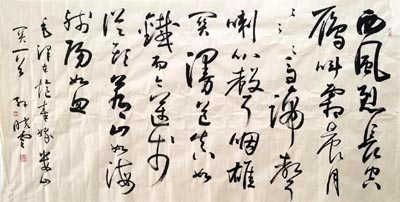 西風烈長空
雁叫霜晨月
馬蹄聲
喇叭聲咽雄
關漫道真如
鐵而今邁步
從頭蒼山如海
殘陽如血
毛澤東憶秦娥婁山
關一首